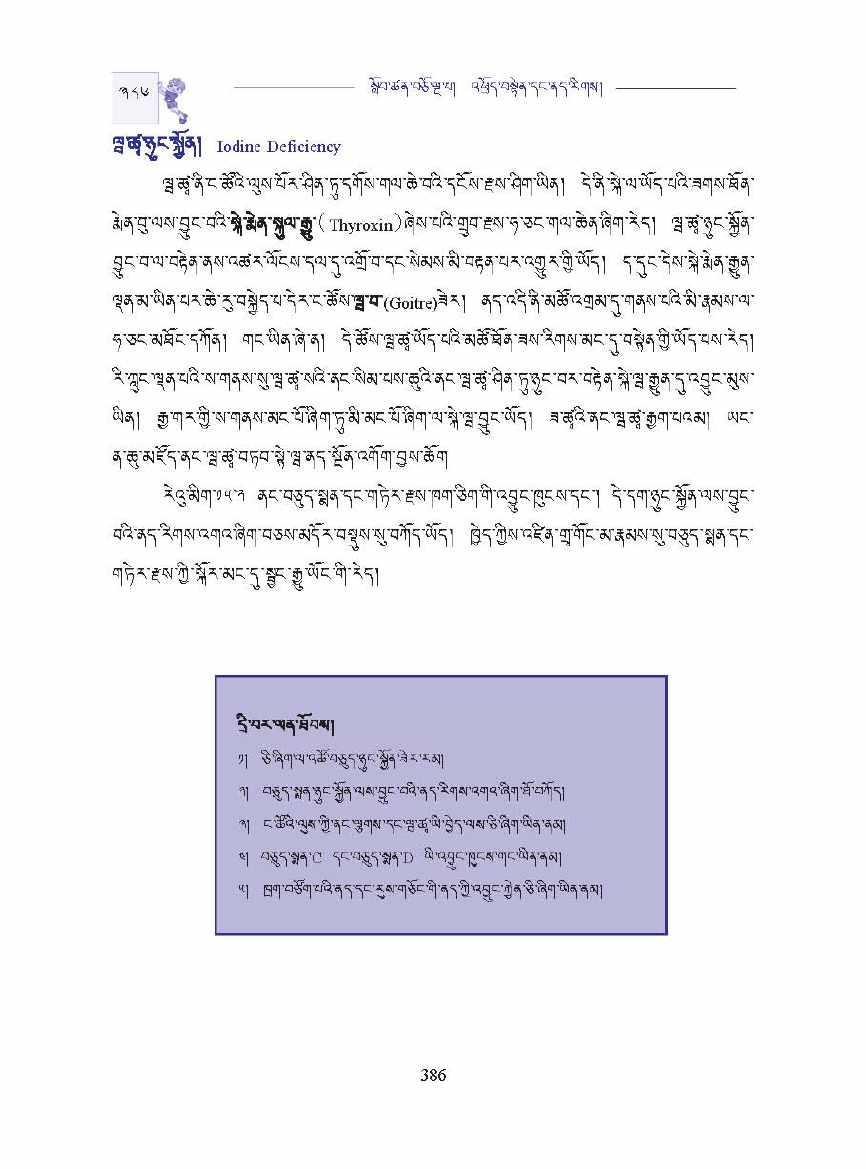 ༣༨༦ སློབ་ཚན་བཅོ་ལྔ་པ། འཕྲོད་བསྟེན་དང་ནད་རིགས།
ལྦ་ཚྭ་ཉུང་སྐྱོན། Iodine Deficiency
ལྦ་ཚྭ་ནི་ང་ཚོའི་ལུས་པོར་ཤིན་ཏུ་དགོས་གལ་ཆེ་བའི་དངོས་རྫས་ཤིག་ཡིན། དེ་ནི་སྐེ་ལ་ཡོད་པའི་ཟགས་ཐོན་
རྨེན་བུ་ལས་བྱུང་བའི་སྐེ་རྨེན་སྐུལ་རྒྱུ་( Thyroxin)ཞེས་པའི་གྲུབ་རྫས་ཧ་ཅང་གལ་ཆེན་ཞིག་རེད། ལྦ་ཚྭ་ཉུང་སྐྱོན་
བྱུང་བ་ལ་བརྟེན་ནས་འཚར་ལོངས་དལ་དུ་འགྲོ་བ་དང་སེམས་མི་བརྟན་པར་འགྱུར་གྱི་ཡོད། ད་དུང་དེས་སྐེ་རྨེན་རྒྱུན་
ལྡན་མ་ཡིན་པར་ཆེ་རུ་བསྐྱེད་པ་དེར་ང་ཚོས་ལྦ་བ་(Goitre)ཟེར། ནད་འདི་ནི་མཚོ་འགྲམ་དུ་གནས་པའི་མི་རྣམས་ལ་
ཧ་ཅང་མཐོང་དཀོན། གང་ཡིན་ཞེ་ན། དེ་ཚོས་ལྦ་ཚྭ་ཡོད་པའི་མཚོ་ཐོན་ཟས་རིགས་མང་དུ་བསྟེན་གྱི་ཡོད་པས་རེད།
རི་ཀླུང་ལྡན་པའི་ས་གནས་སུ་ལྦ་ཚྭ་སའི་ནང་སིམ་པས་ཆུའི་ནང་ལྦ་ཚྭ་ཤིན་ཏུ་ཉུང་བར་བརྟེན་སྐེ་ལྦ་རྒྱུན་དུ་འབྱུང་མུས་
ཡིན། རྒྱ་གར་གྱི་ས་གནས་མང་པོ་ཞིག་ཏུ་མི་མང་པོ་ཞིག་ལ་སྐེ་ལྦ་བྱུང་ཡོད། ཟ་ཚྭའི་ནང་ལྦ་ཚྭ་རྒྱག་པའམ། ཡང་
ན་ཆུ་མཛོད་ནང་ལྦ་ཚྭ་བཏབ་སྟེ་ལྦ་ནད་སྔོན་འགོག་བྱས་ཆོག
རེའུ་མིག་༡༥་༣ ནང་བཅུད་སྨན་དང་གཏེར་རྫས་ཁག་ཅིག་གི་འབྱུང་ཁུངས་དང་། དེ་དག་ཉུང་སྐྱོན་ལས་བྱུང་
བའི་ནད་རིགས་འགའ་ཞིག་བཅས་མདོར་བསྡུས་སུ་བཀོད་ཡོད། ཁྱེད་ཀྱིས་འཛིན་གྲྭ་གོང་མ་རྣམས་སུ་བཅུད་སྨན་དང་
གཏེར་རྫས་ཀྱི་སྐོར་མང་དུ་སྦྱང་རྒྱུ་ཡོང་གི་རེད།
དྲི་བར་ལན་ཐོབས།
༡། ཅི་ཞིག་ལ་འཚོ་བཅུད་ཉུང་སྐྱོན་ཟེར་རམ།
༢། བཅུད་སྨན་ཉུང་སྐྱོན་ལས་བྱུང་བའི་ནད་རིགས་འགའ་ཞིག་ཐོ་བཀོད།
༣། ང་ཚོའི་ལུས་ཀྱི་ནང་ལྕགས་དང་ལྦ་ཚྭ་ཡི་བྱེད་ལས་ཅི་ཞིག་ཡིན་ནམ།
༤། བཅུད་སྨན་C དང་བཅུད་སྨན་D ཡི་འབྱུང་ཁུངས་གང་ཡིན་ནམ།
༥། ཁྲག་བཙོག་པའི་ནད་དང་རུས་གཅོང་གི་ནད་ཀྱི་འབྱུང་རྐྱེན་ཅི་ཞིག་ཡིན་ནམ།
386